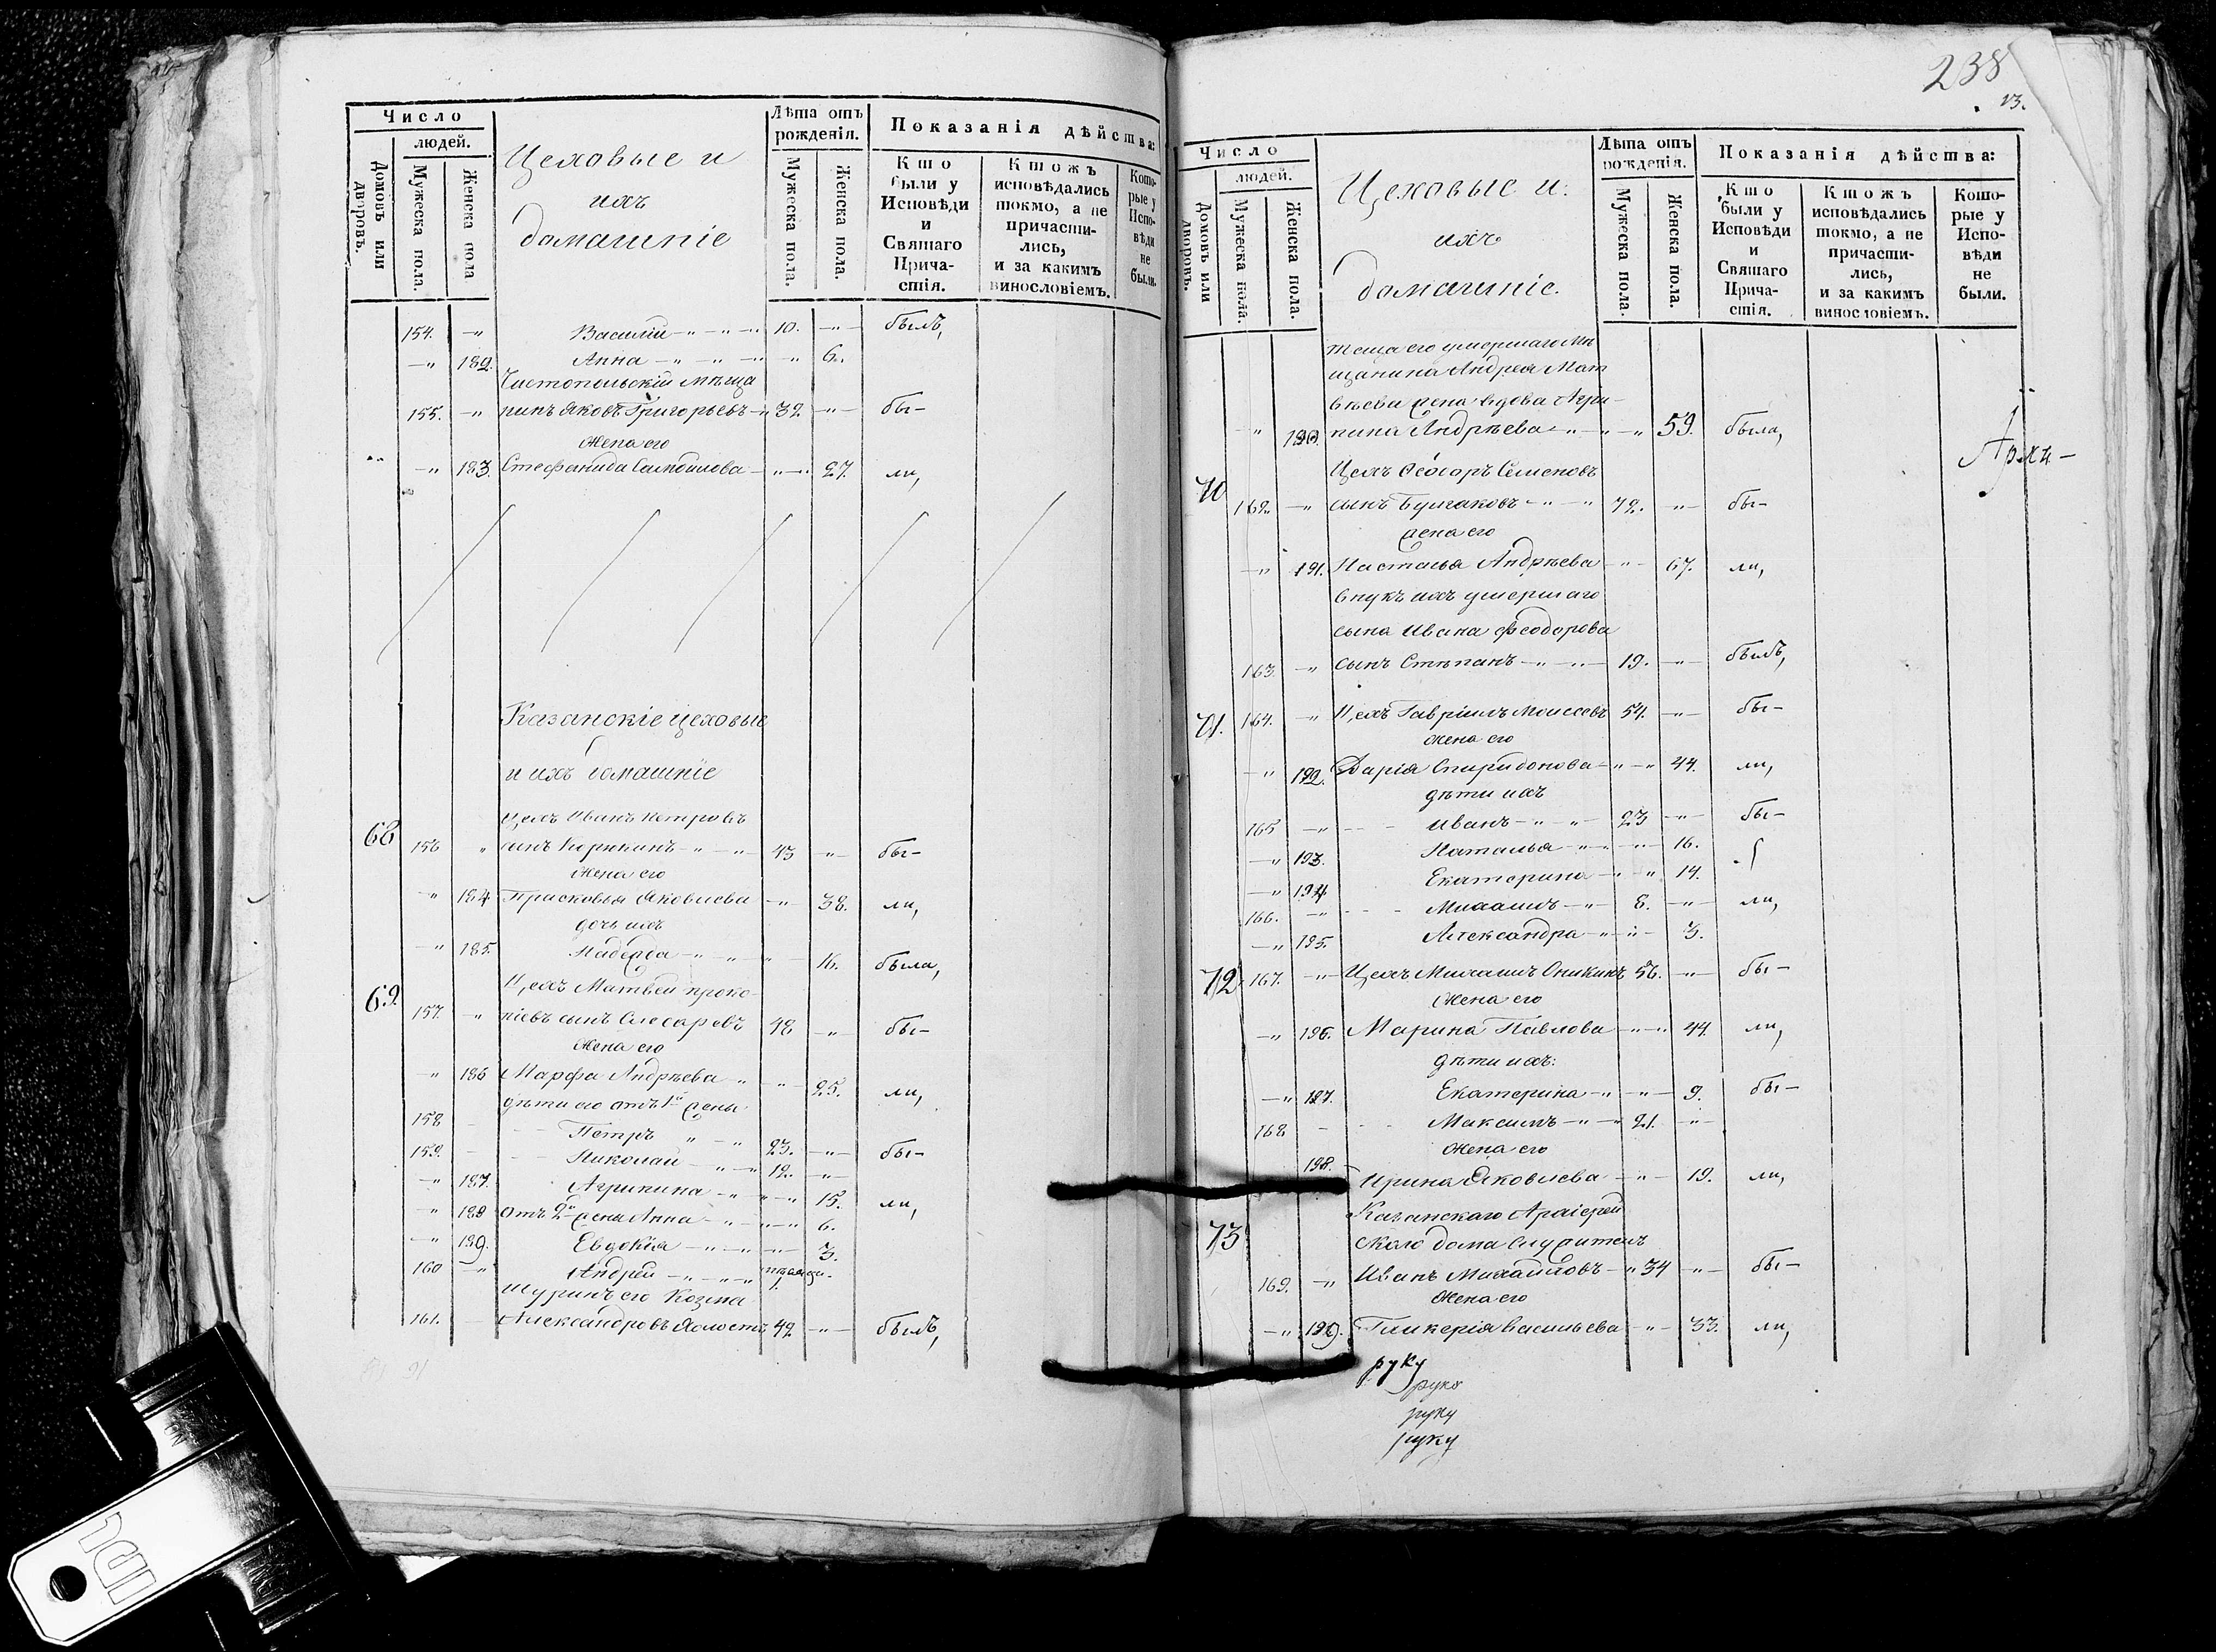 Число
людей.
Домовъ или дворовъ.
Мужеска пола.
Женска пола
Цеховые и
ихъ
домашніе
Лѣта отъ
рожденія.
Мужеска пола.
Женска пола.
Показанія дѣйства:
Кто были у Исповѣди и Святаго Причастія.
Ктожъ исповѣдались токмо, а не причастились, и за какимъ винословіемъ.
Которые у Исповѣди не были.
154. -"- Василій -"-"-" 10. -"- былъ,
-" 182. Анна -"-"-" -" 6.
Чистопольскій мѣща
155. -" нинъ Яковъ Григорьевъ -" 32. -"- бы-
жена его
-" 183. Стефанида Самойлова -"-" 27. ли,
Казанскіе цеховые
и ихъ домашніе
Цехъ Иванъ Петровъ
68 156 " сынъ -"-" 43 "- бы-
жена его
-" 184 Прасковья Яковлева -" 38. ли,
дочь ихъ
-" 185. Надежда -"-"-"- 16. была,
Цехъ Матвей Проко
69. 157. -" піевъ сынъ Слесаревъ 48 -" бы-
жена его
" 186 Марфа Андрѣева "-" 25. ли,
дѣти его отъ 1й жены
158 - Петръ "-" 23. -"- бы-
159. - Николай -"-" 12. -"-
-" 187. Агрипина -"-"-" 15. ли,
" 188 отъ 2й жены Анна -"-"-" 6.
-" 189. Евдокія -"-"-" 3.
160 -" Андрей -"-"-" 1.
Шуринъ его Козма
161. - Александровъ холостъ 42 -"- былъ,
238
13.
Число
людей.
Домовъ или дворовъ.
Мужеска пола.
Женска пола.
Цеховые и
ихъ
домашніе.
Лѣта отъ
рожденія.
Мужеска пола.
Женска пола.
Показанія дѣйства:
Кто были у Исповѣди и Святаго Причастія.
Ктожъ исповѣдались токмо, а не причастились, и за какимъ винословіемъ.
Которые у Исповѣди не были.
теща его умершаго мѣ
щанина Андрея Мат
вѣева жена вдова Агри-
" 190. пина Андрѣева -"-"-" 59. была,
Архи-
Цехъ Ѳеодоръ Семеновъ
70 162. -" сынъ Булгаковъ -"-" 72. "- бы-
жена его
-" 191. Настасья Андрѣева -"- 67. ли,
внукъ ихъ умершаго
сына Ивана Феодорова
163. -" сынъ Стѣпанъ -"-"- 19. -"- былъ,
71. 164. -" Цехъ Гавріилъ Моисеевъ 54. -"- бы-
жена его
-" 192. Дарія Спиридонова -"-" 44. ли,
дѣти ихъ
165 -" Иванъ -"-"- 23 -"- бы-
-" 193. Наталья -"-"-"- 16.
-" 194 Екатерина -"-" 14.
166. -" Михаилъ -"- 8. -"- ли,
-" 195. Александра -"-"- 3.
72 167. -" Цехъ Михаилъ Оникинъ 56. -"- бы-
жена его
-" 196. Марина Павлова -"-" 44. ли,
дѣти ихъ:
-" 197. Екатерина -"-"- 9. бы-
168 - Максимъ -"-" 21. -"-
жена его
198. Ирина Яковлева -"- 19. ли,
Казанскаго Архіерей
73 скаго дома служитель
169. -" Иванъ Михайловъ -" 34 -"- бы-
жена его
-" 199. Гликерія Васильева -"- 33. ли,
руку
руко
руку
руку